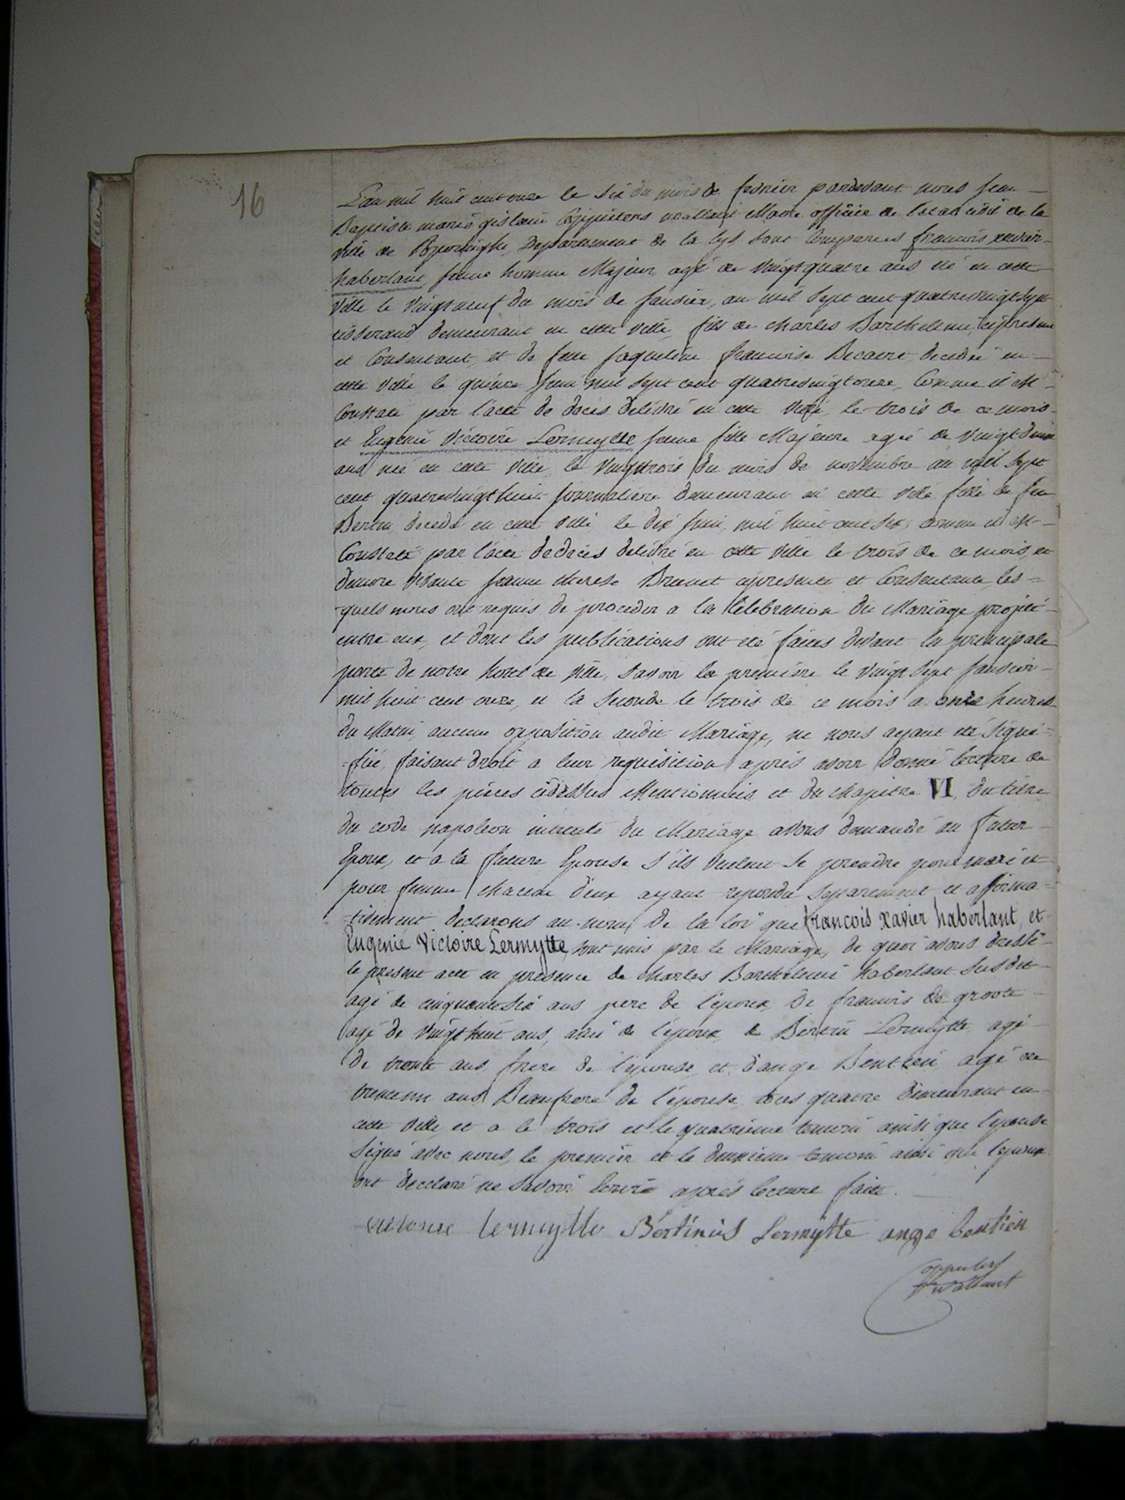 16
L'an mil huit cent onze le six du mois de fevrier pardevant nous Jean
Baptiste marie gislain Maire officier de l'etat civil de la
ville de Departement de la lys sont comparus francois xavier
haberlant jeune homme Majeur agé de vingt quatre ans né en cette
ville le vingt neuf du mois de janvier, an mil sept cent quatrevingt sept
tisserand demeurant en cette ville, fils de charles Barthelemi, cipresent
et Consentant, et de feue jaqueline francoise Decaere decedée en
cette ville le quinze juin mil sept cent quatrevingt onze, Comme il est
Constaté par l'acte de decès delivré en cette ville le trois de ce mois
et Eugenie Victoire Lermytte jeune fille Majeure agée de vingt deux
ans née en cette ville le vingt trois du mois de novembre an mil sept
cent quatrevingt huit journaliere demeurant en cette ville fille de feu
Bertin decedé en cette ville le dix juin, mil huit cent six, comme il est
Constaté par l'acte de decès delivré en cette ville le trois de ce mois et
encore vivante jeanne therese cipresente et Consentante, les
quels nous ont requis de proceder a la Celebration du Mariage projeté
entre eux, et dont les publications ont été faites devant la principale
porte de notre hotel de ville, savoir la premiere le vingt sept janvier
mil huit cent onze, et la seconde le trois de ce mois a onze heures
du Matin, aucune opposition audit Mariage, ne nous ayant été signi
fiée, faisant droit a leur requisition, après avoir donné lecture de
toutes les pieces cidessus Mentionnées et du chapitre VI, du titre
du code napoleon intitulé du Mariage avons demandé au futur
Epoux, et a la future Epouse s'ils veulent se prendre pour mari et
pour femme, chacun d'eux ayant repondu separement et affirma
tivement declarons au nom de la loi que francois xavier haberlant, et
Eugenie Victoire Lermytte, sont unis par le Mariage, de quoi avons dressé
le present acte en presence de charles Barthelemi haberlant susdit
agé de cinquante six ans pere de l'epoux, De francois de groote
agé de vingt huit ans, ami de l'epoux, de Bertin Lermytte agé
de trente ans frere de l'epouse, et d'ange Bentein agé de
trente ans Beaufrere de l'epouse, tous quatre demeurant en
cette ville, et a le trois et le quatrieme temoin ainsi que l'epouse
signé avec nous, le premier et le deuxieme temoin ainsi que l'epoux
ont declaré ne savoir Ecrire après lecture faite.
victoire lermytte Bertinus Lermytte ange bentein